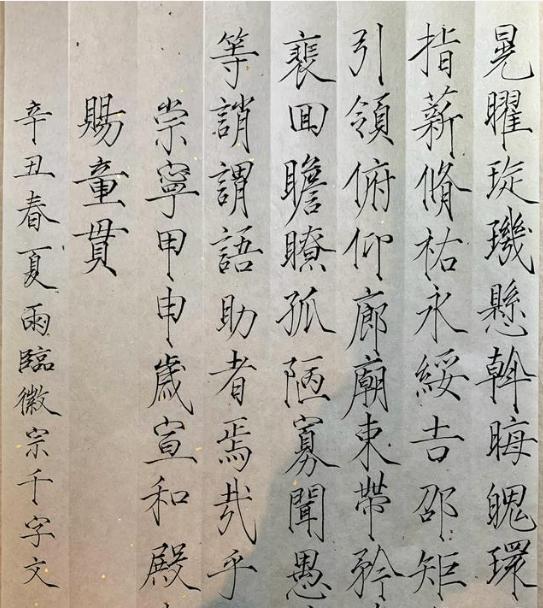 晃曜琁璣懸斡晦魄環
指薪脩祐永綏吉邵矩
引領俯仰廊廟東帶矜
裵囬瞻瞭孤陋寡聞愚
等誚謂語助者焉哉乎
崇寧甲申歲宣和殿
賜童貫
辛丑春夏雨臨徽宗千字文